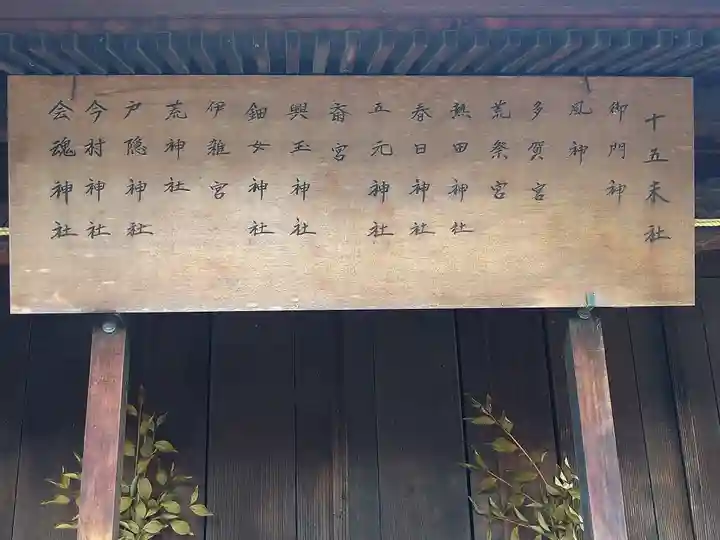 十五末社
御門神
風神
多賀宮
荒祭宮
熱田神社
春日神社
五元神社
斎宮
興玉神社
鈿女神社
伊雑宮
荒神社
戸隠神社
今村神社
会魂神社